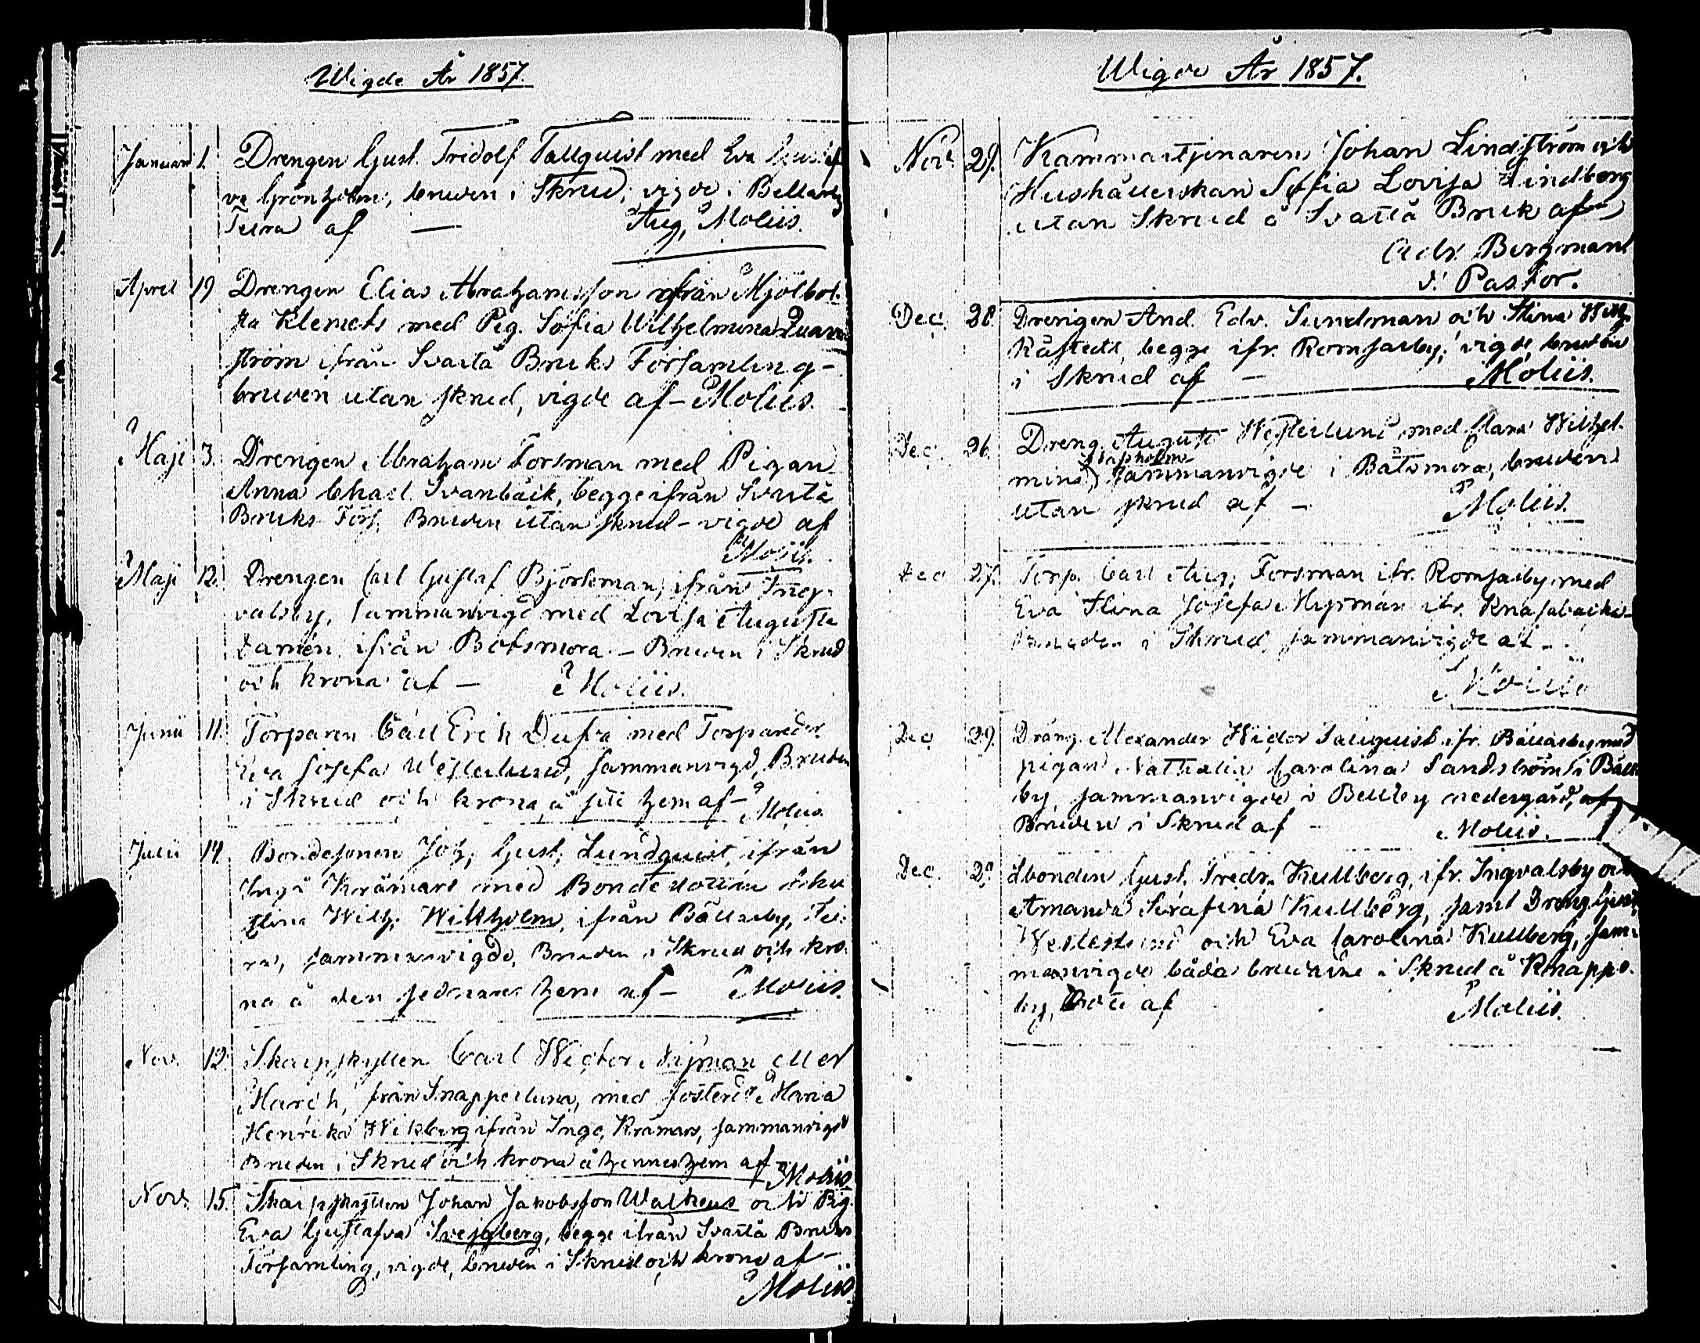 Wigde År 1857.
Januari 1. Drengen Gust. Fridolf Tallquist med Eva Gustaf
va Grönholm, bruden i Skrud, vigde i Bellarby
Tera af — Aug. Moliis.
April 19 Drengen Elias Abrahamsson ifrån Mjölbol-
sta Klemets med Pig. Sofia Wilhelmina Quarn
ström ifrån Svartå Bruks Församling -
bruden utan skrud, vigde af - Moliis.
Maji 3. Drengen Abraham Forsman med Pigan
Anna Charl. Svanbäck, begge ifrån Svartå
Bruks Förs. Bruden utan skrud - vigde af
Moliis.
Maji 12. Drengen Carl Gustaf Björkman, ifrån Ing-
valsby, sammanvigd med Lovisa Augusta
Damén ifrån Botsmora - Bruden i Skrud
och krona af — Moliis.
Junii 11. Torparen Carl Erik Dufva med Torparedot
Eva Josefa Westerlund, sammanvigd, Bruden
i Skrud och krona, å sitt hem af - Moliis.
Julii 14. Bondesonen Joh. Gust. Lundquist, ifrån
Ingå Krämars med Bondedottern
Stina Wilh. Wikholm, ifrån Bällarby, Te-
ra, sammanvigde, Bruden i Skrud och kro-
na å den sednares hem af - Moliis.
Nov. 12. Skarpskytten Carl Victor Nyman eller
March, från Snappertuna, med fosterd. Maria
Henrika Wikberg ifrån Ingå, Krämars, sammanvigde
Bruden i Skrud och krona å hennes hem af Moliis
Nov. 15. Skarpskytten Johan Jakobsson Walkeus och Pig.
Eva Gustafva Svegberg, begge ifrån Svartå Bruks
Församling, vigde, bruden i Skrud och krona af -
Moliis
Wigde År 1857.
Nov. 29. Kammartjenaren Johan Lindström och
Hushållerskan Sofia Lovisa Lindberg
utan Skrud å Svartå Bruk af
Adr. Bergman
v. Pastor.
Dec. 28. Drengen And. Edv. Sundman och Stina Wilh.
Råstedt, begge ifr. Romsarby, vigde, bruden
i Skrud af — Moliis.
Dec. 26. Dreng. August Westerlund med Maria Wilhel-
mina sammanvigde i Båtsmora, bruden
utan skrud af — Moliis.
Dec 27. Torp. Carl Aug. Forsman ifr. Romsarby med
Eva Stina Josefa Myrman ifr. Knapsbacka
Bruden i Skrud, sammanvigde af - -
Moliis
Dec 29. Dräng. Alexander Victor Tallquist ifr. Bällarby med
pigan Nathalia Carolina Sandström i Bäll
by, sammanvigde i Bellby nedergård, af
Bruden i Skrud af Moliis.
Dec. 29 Åbonden Gust. Fredr. Kullberg, ifr. Ingvalsby och
Amanda Serafina Kullberg, samt Dreng Gust.
Westerlund och Eva Carolina Kullberg, sam-
manvigde båda brudarne i Skrud å Knapps-
by, af Moliis.